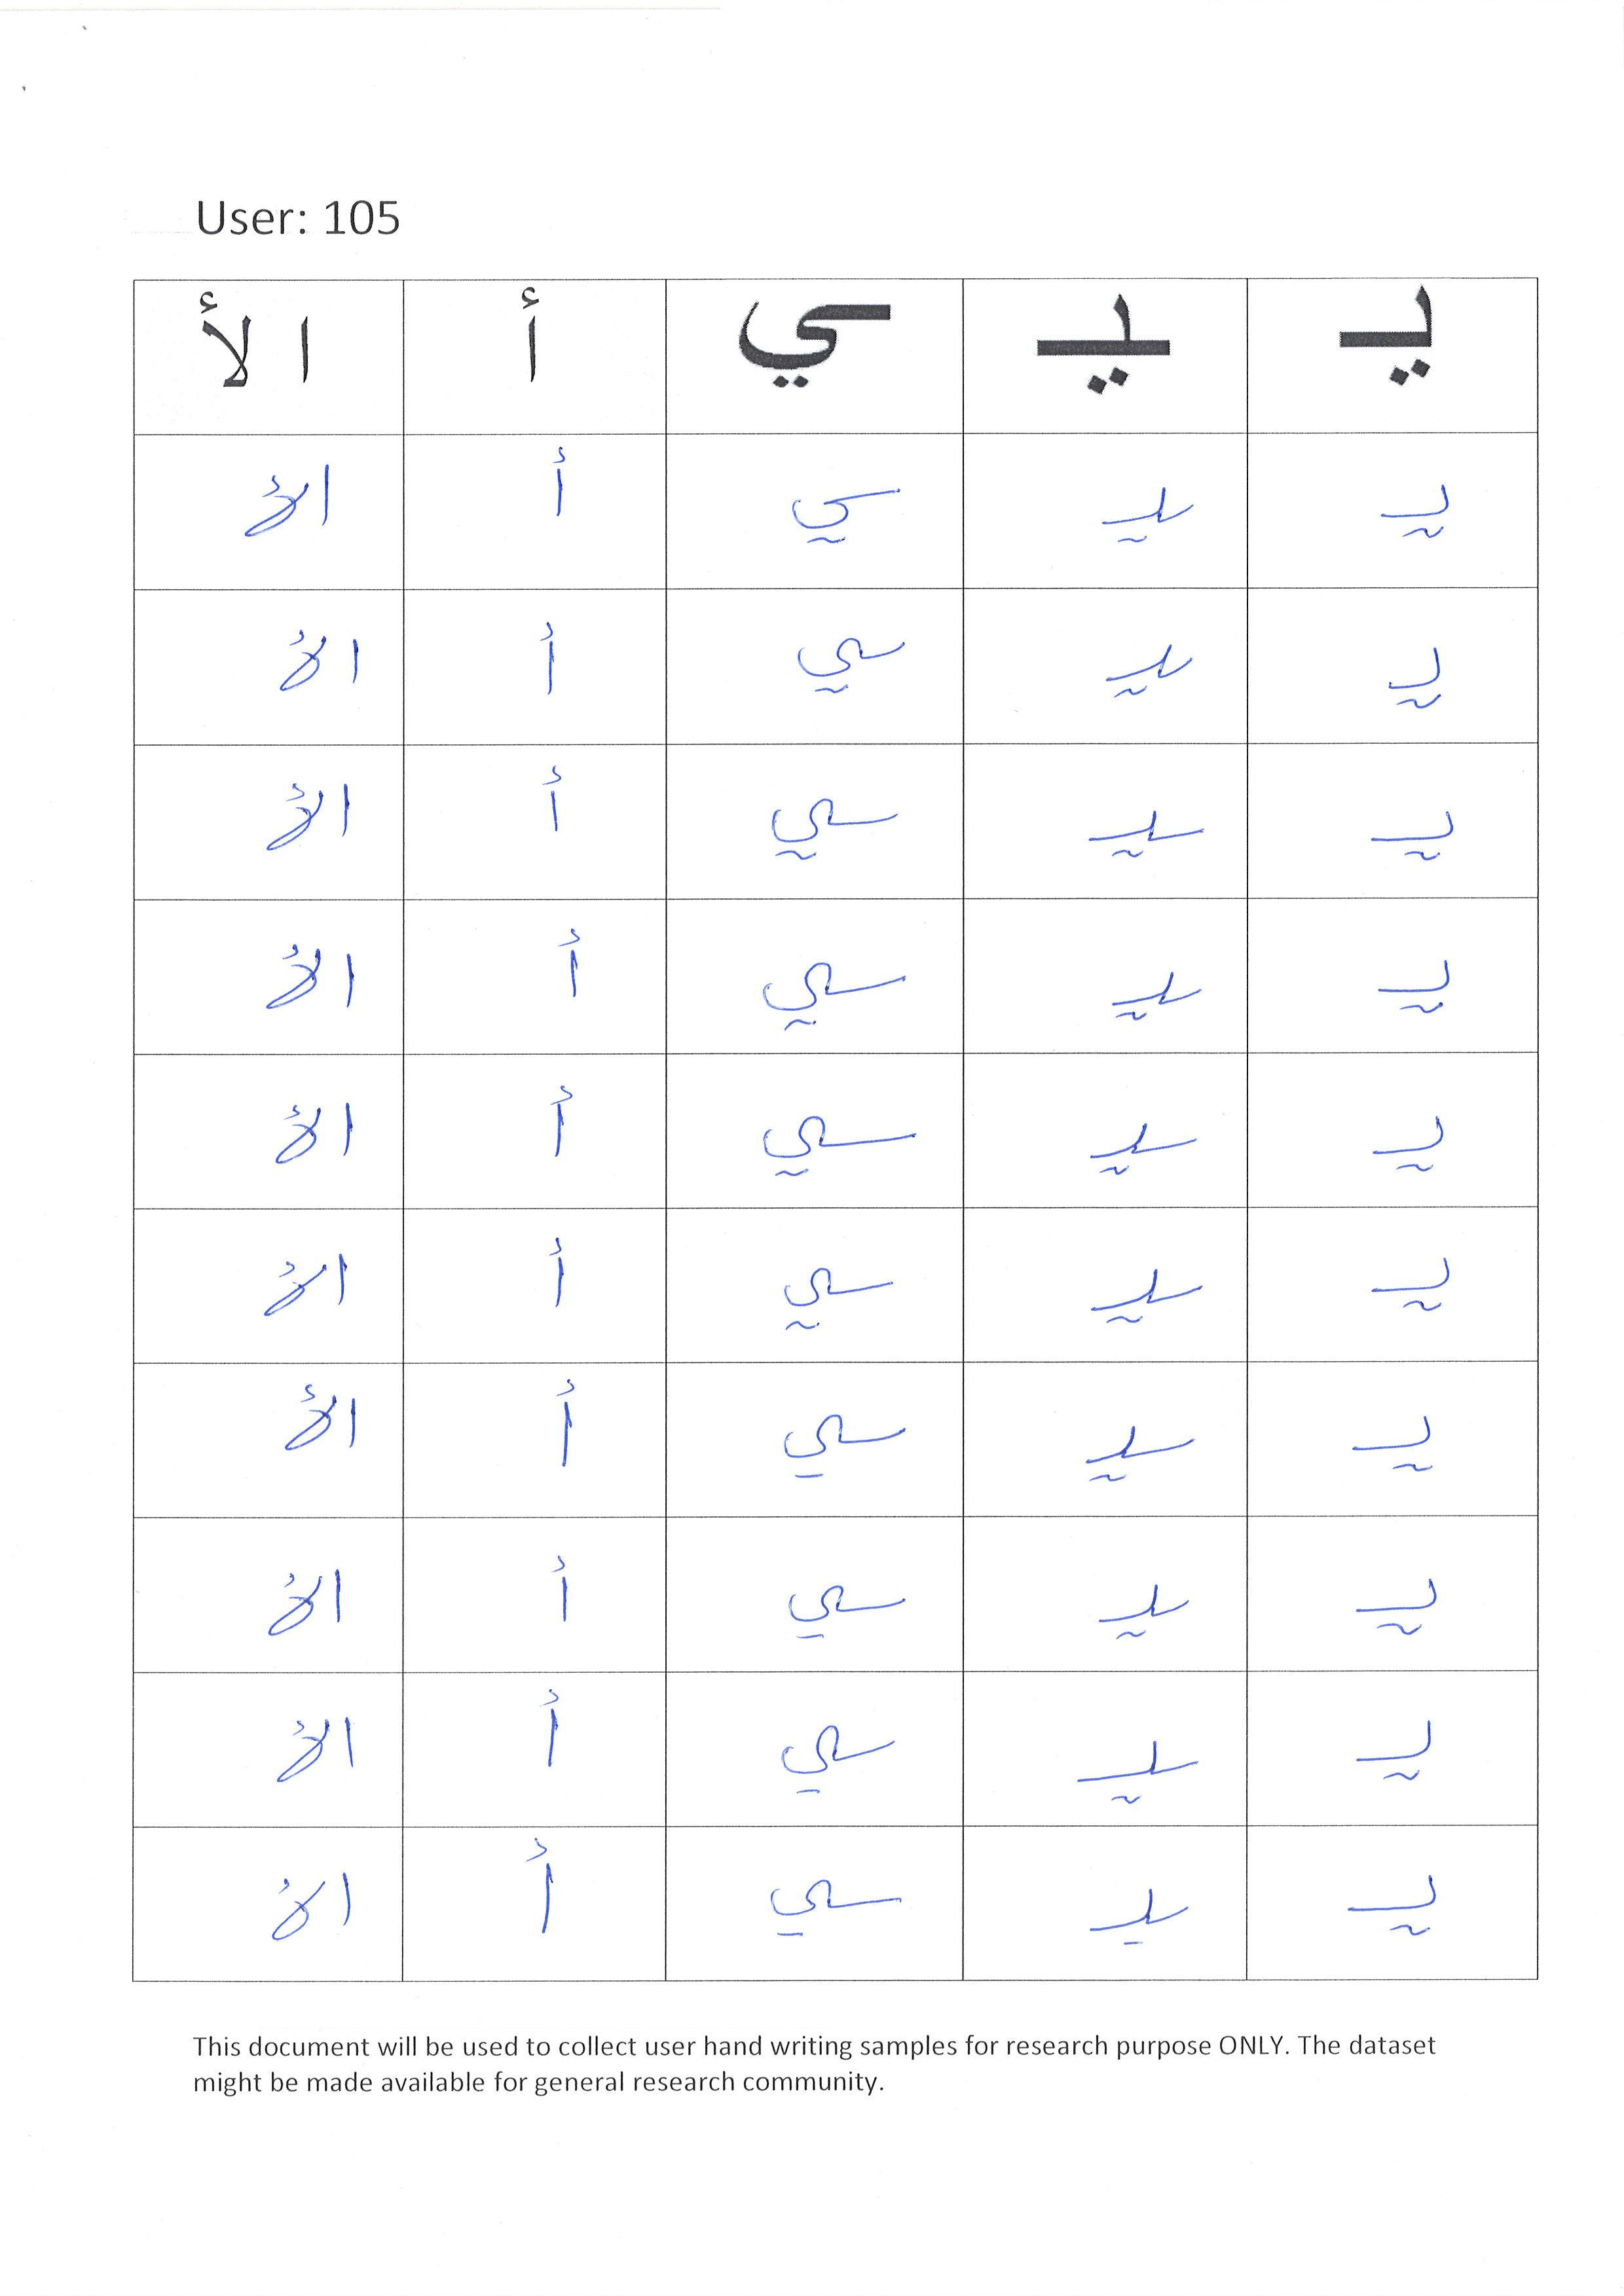 User: 105
يـ ـيـ ـي أ الأ
يـ ـيـ ـي أ الأ
يـ ـيـ ـي أ الأ
يـ ـيـ ـي أ الأ
يـ ـيـ ـي أ الأ
يـ ـيـ ـي أ الأ
يـ ـيـ ـي أ الأ
يـ ـيـ ـي أ الأ
يـ ـيـ ـي أ الأ
يـ ـيـ ـي أ الأ
يـ ـيـ ـي أ الأ
This document will be used to collect user hand writing samples for research purpose ONLY. The dataset
might be made available for general research community.